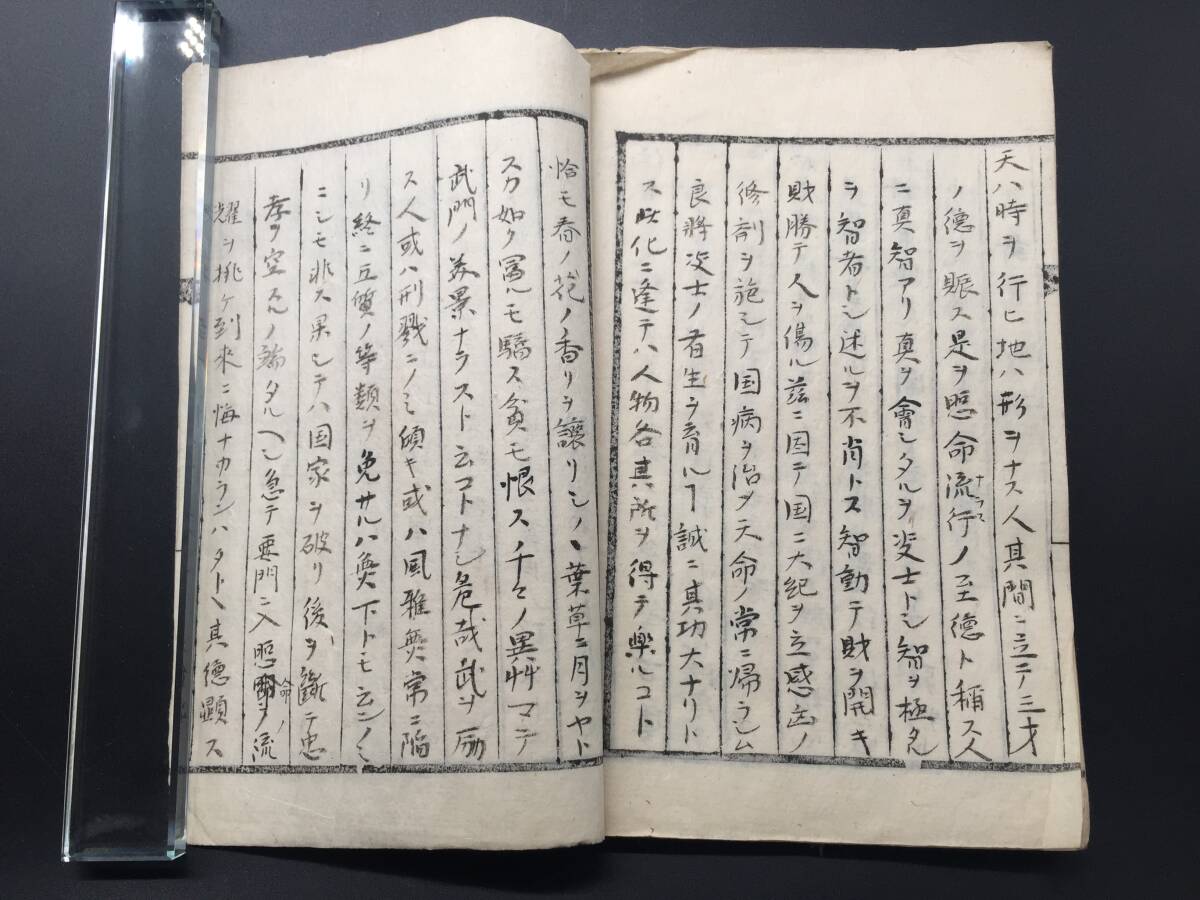 天ハ時ヲ行ヒ地ハ形ヲナス人其間ニ立テ三才
ノ徳ヲ賑ス是ヲ照命流行ノ至徳ト稱ス人
ナラス
ニ真智アリ真ヲ會シタルヲ士トシ智ヲ極タル
ヲ智者トシ述ルヲ不肖トス智動テ財ヲ開キ
財勝テ人ヲ傷ル茲ニ因テ国ニ大紀ヲ立惑乱ノ
修剤ヲ施シテ国病ヲ治タ天命ノ常ニ帰ラシム
良將次士ノ有生ヲ育ルヿ誠ニ其功大ナリト
ス此化ニ逢テハ人物各其所ヲ得テ樂ルコト
恰モ春ノ花ノ香リヲ譲リシノヽ葉草ニ月ヲヤト
スカ如ク冨ルモ驕ス貧モ恨ス千々ノ異艸マテ
武門ノ美景ナラスト云コトナシ危哉武ヲ励
ス人或ハ刑戮ニノミ傾キ或ハ風雅無常ニ陥
リ終ニ立質ノ等類ヲ免サルハ無下トモ云ンノミ
ニシモ非ス果シテハ国家ヲ破リ後ヲ断テ忠
孝空スルノ端タルヘシ急テ要門ニ入照命ノ流
耀ヲ挑ケ到来ニ悔ナカランハタトヽ其徳顕ス